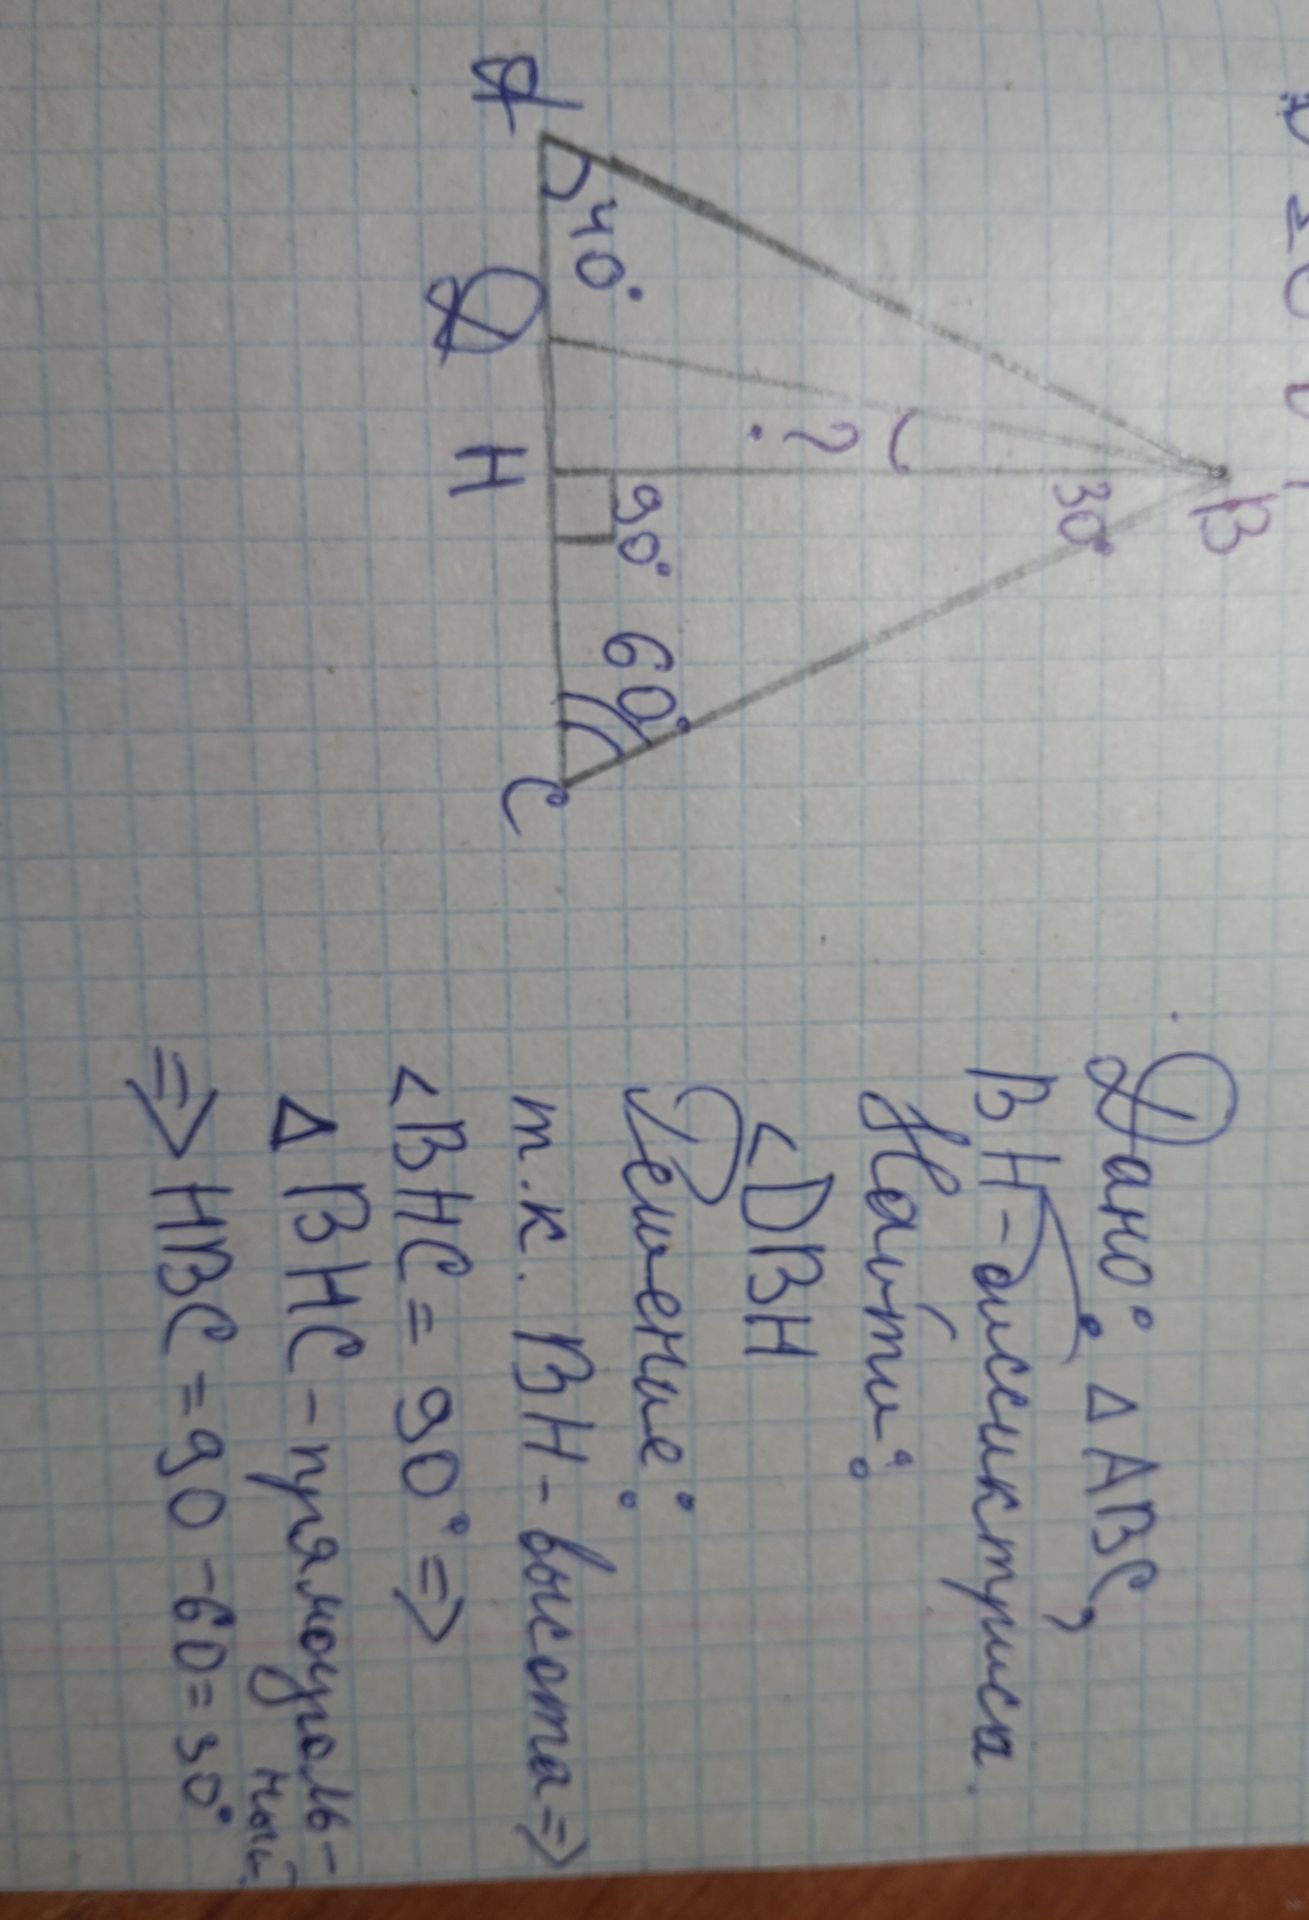 B
30°
?
40°
90°
60°
A
D
H
C
Дано: △ABC,
BH-биссиктриса.
Найти:
<DBH
Решение:
т.к. BH-высота=>
<BHC=90°=>
△BHC-прямоуголь-
ный
=>HBC=90-60=30°